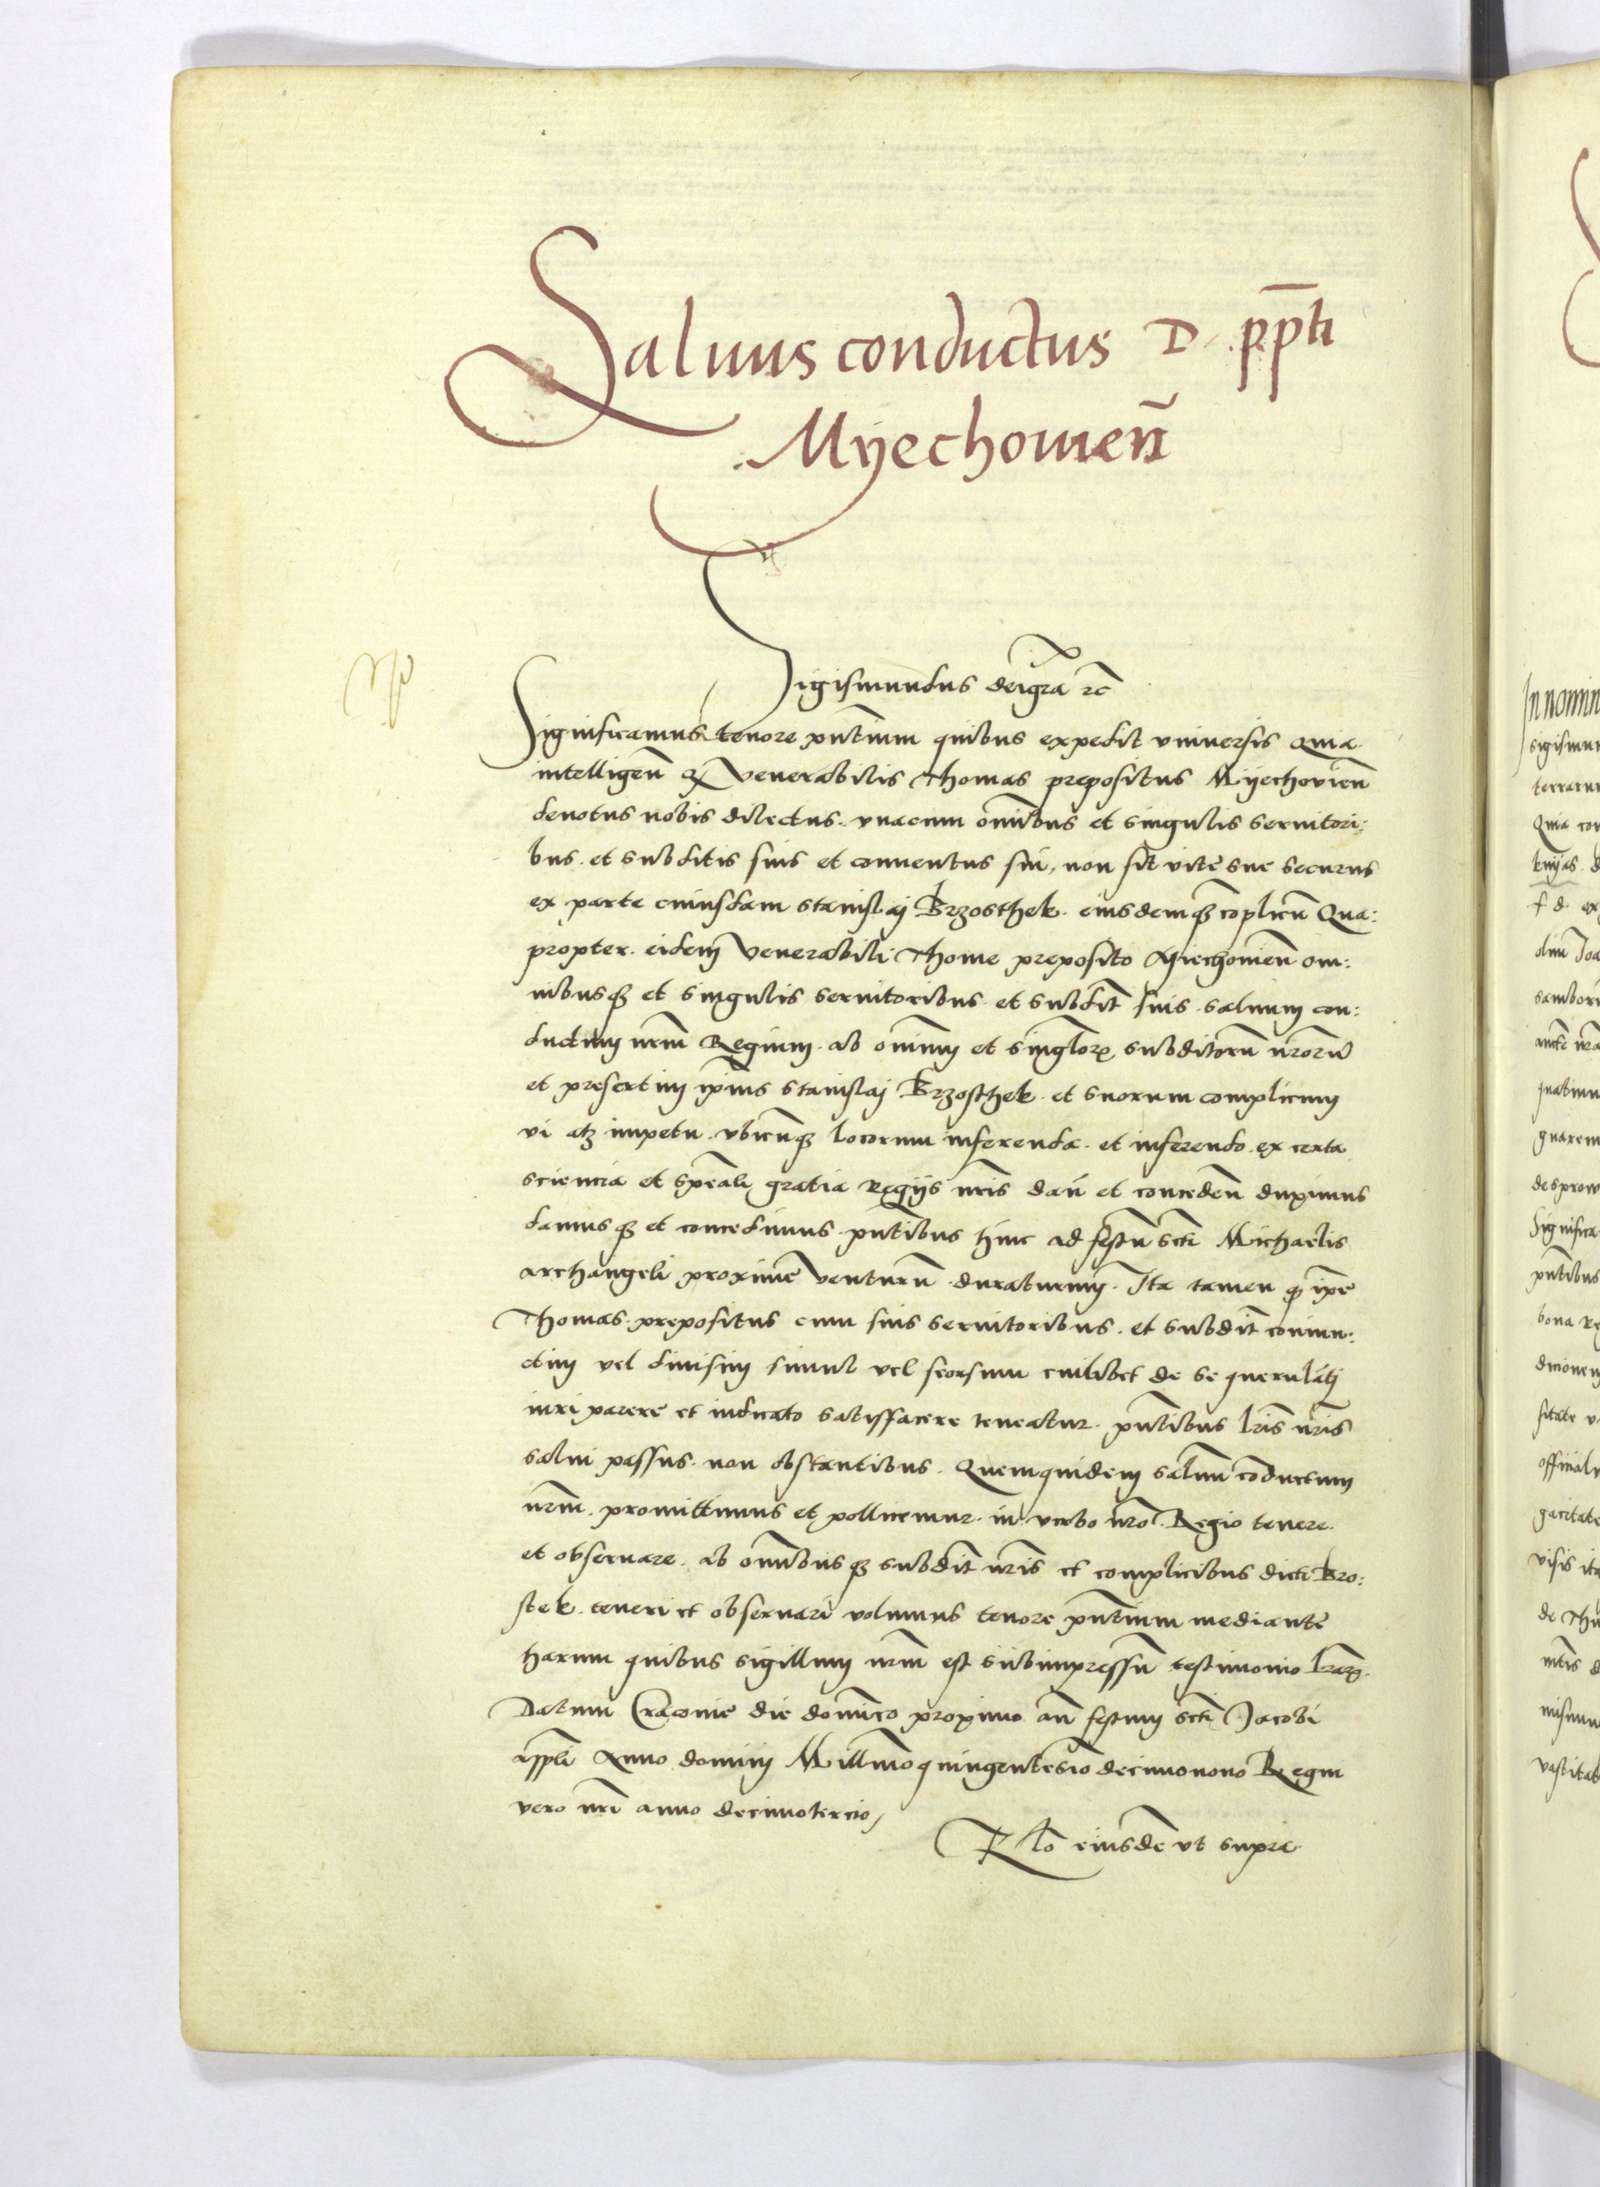 Saluus conductus D. ppti
Myechouien̄
Sigismundus dei gra̅ rc̅
Significamus tenore pn̅tium quibus expedit vniuersis Quia
intelligen̅ Venerabilis Thomas prepositus Myechouien̅
deuotus nobis dilectus. vnacum om̅ibus et singulis seruitori:
bus. et subditis suis et conuentus sui, non sit vite sue securus
ex parte cuiusdam stanislaj Brzosthek. eiusdemqȝ co̅plicu̅ Qua:
propter. eidem Venerabili Thome preposito Miechouien̅ om:
nibusqȝ et singulis seruitoribus et subdit̅ suis. saluum con:
ductum nr̅m Regium. ab om̅ium et singlorꝝ subditoru̅ nr̅oru̅
et presertim ip̅ius stanislaj Brzosthek. et suorum complicium
vi atqȝ impetu. vbicu̅qȝ locorum inferenda. et inferendo. ex certa
sciencia et sp̅eali gratia Regijs nr̅is dan̅ et conceden̅ duximus
damusqȝ et concedimus. pn̅tibus hinc ad festu̅ sc̅ti Michaelis
archangeli proxime venturu̅ duraturum. Ita tamen ip̅e
Thomas. prepositus cum suis seruitoribus. et subdit̅ coniun:
ctim vel diuisim simul vel seorsum cuilibet de se querula̅ti
iuri parere et iudicato satisfacere teneatur. pn̅tibus lr̅is nr̅is
salui passus. non obstantibus. Quemquidem saluu̅ co̅ductum
nr̅m. promittimus et pollicemur. in verbo nr̅o. Regio tenere.
et obseruare. ab om̅ibusqȝ subdit̅ nr̅is et complicibus dicti Bro:
stek. teneri et obseruari volumus tenore pn̅tium mediante
harum quibus sigillum nr̅m est subimpressu̅ testimonio lr̅arꝝ.
Datum Cracouie die domi̅co proximo an̅ festum sc̅ti Jacobi
ap̅pli Anno domini Mill̅imo quingentesi̅o decimonono Regni
vero nr̅i anno decimotercio,
Rl̅o eiusde̅ vt supra